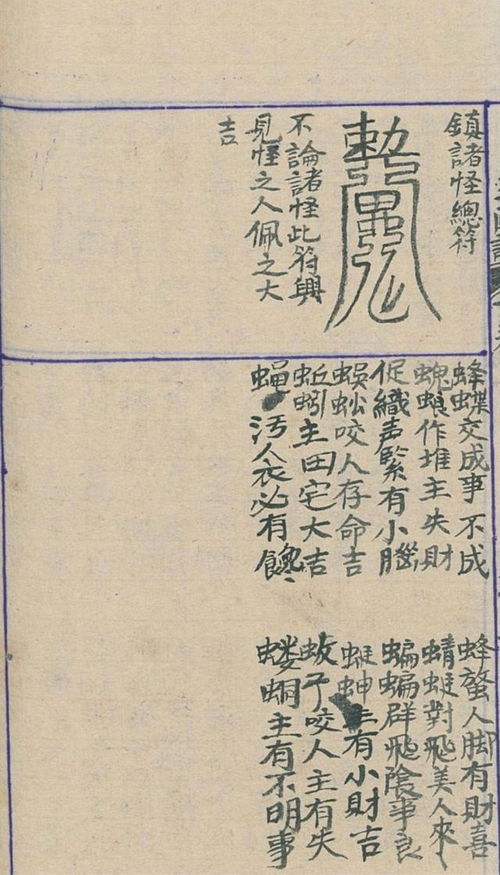 鎮諸怪總符
勅
不論諸怪此符與
見怪之人佩之大
吉
蜂蝶交成事不成
蜣蜋作堆主失財
促織声緊有小腦
蜈蚣咬人存命吉
蚯蚓主田宅大吉
蝇污人衣必有饞
蜂螫人脚有財喜
蜻蜓對飛美人來
蝙蝠群飛陰事良
主有小財吉
蚊子咬人主有失
主有不明事